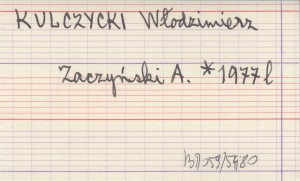 KULCZYCKI Włodzimierz
Zaczyński A. * 1977 l